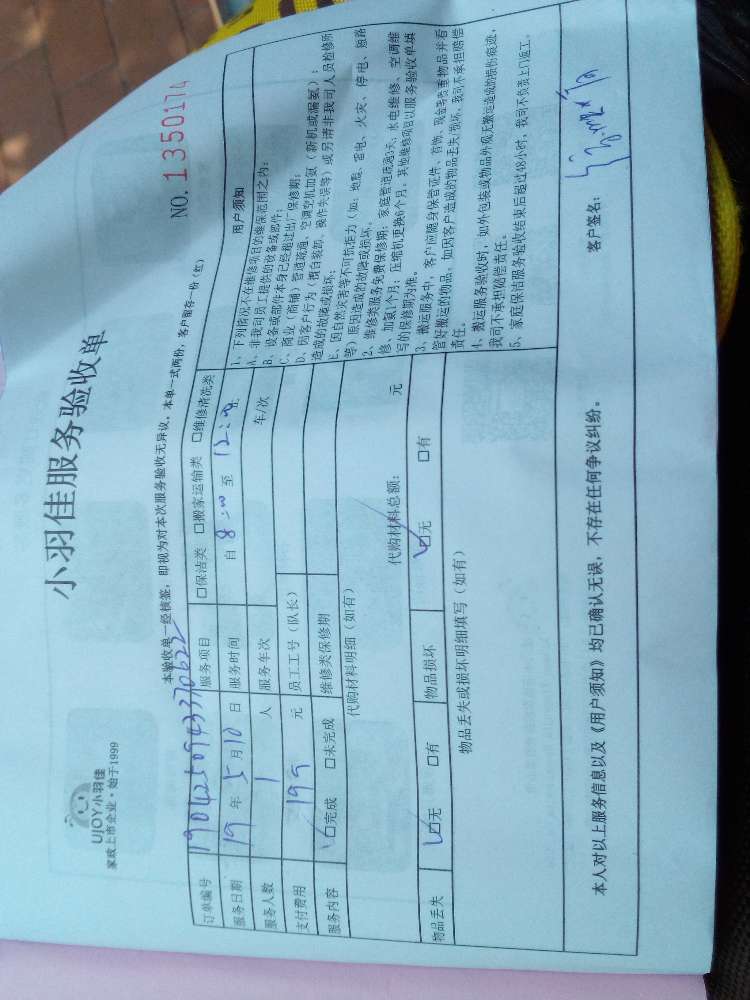 UJOY小羽佳
家政上市企业·始于1999
小羽佳服务验收单
NO.1350174
本验收单一经核签，即视为对本次服务验收无异议，本单一式两份，客户留存一份（红）
订单编号 190425094337062
服务项目 □保洁类 □搬家运输类 □维修清洗类
服务日期 19年5月10日 服务时间 自 8:00 至 12:00 止
服务人数 1 人 服务车次 车/次
支付费用 199 元 员工工号（队长）
服务内容 □完成 □未完成 维修类保修期
代购材料明细（如有）
代购材料总额： 元
物品丢失 □无 □有 物品损坏 □无 □有
物品丢失或损坏明细填写（如有）
用户须知
1、下列情况不在维修项目的维保范围之内：
A、非我司员工提供的设备或部件；
B、设备或部件本身已经超过出厂保修期；
C、商业（商铺）管道疏通，空调空机加氨（新机或漏氨）；
D、因客户行为（擅自装卸、操作失误等）或另请非我司人员检修所
造成的故障或损坏；
E、因自然灾害等不可抗拒力（如：地震、雷电、火灾、停电、短路
等）原因造成的故障或损坏。
2、维修类服务免费保修期：家庭管道疏通3天，水电维修、空调维
修、加氨1个月；压缩机更换6个月。其他维修项目以服务验收单填
写的保修期为准。
3、搬运服务中，客户应随身保管证件、首饰、现金等贵重物品并看
管好搬运的物品，如因客户造成的物品丢失/毁坏，我司不承担赔偿
责任。
4、搬运服务验收时，如外包装或物品外观无搬运造成的损伤痕迹，
我司不承担赔偿责任。
5、家庭保洁服务验收结束后超过48小时，我司不负责上门返工。
本人对以上服务信息以及《用户须知》均已确认无误，不存在任何争议纠纷。
客户签名：